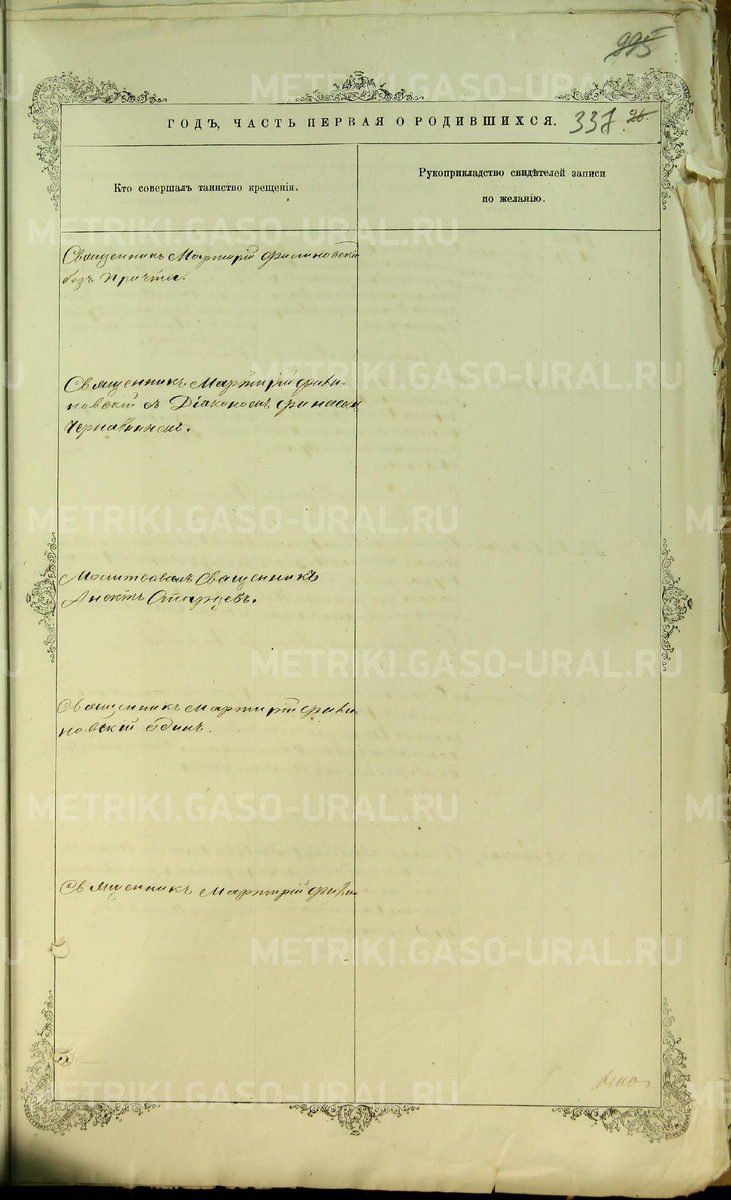 995
ГОДЪ, ЧАСТЬ ПЕРВАЯ О РОДИВШИХСЯ. 337. 26
Кто совершалъ таинство крещенія.
Рукоприкладство свидѣтелей записи
по желанію.
Священникъ Мартирій
безъ причта.
Священникъ Мартирій
новскій съ Діакономъ
Молитвовалъ Священникъ
Священникъ Мартирій
новскій одинъ.
Священникъ Мартирій
METRIKI.GASO-URAL.RU